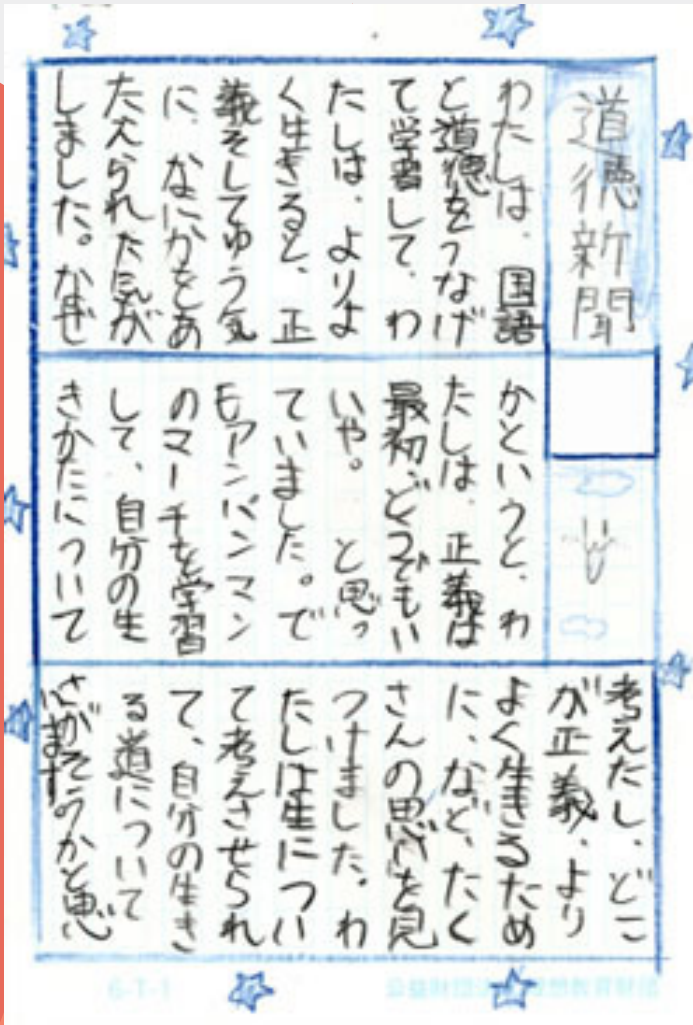 道徳新聞
わたしは、国語
と道徳をつなげ
て学習して、わ
たしは、よりよ
く生きると、正
義そしてゆう気
に、なにかをあ
たえられた気が
しました。なぜ
かというと、わ
たしは、正義は
最初、どうでもい
いや。と思っ
ていました。で
もアンパンマン
のマーチを学習
して、自分の生
きかたについて
考えたし、どこ
が正義、より
よく生きるため
に、など、たく
さんの思いを見
つけました。わ
たしは生につい
て考えさせられ
て、自分の生き
る道について
さがそうかと思
います
6-T-1